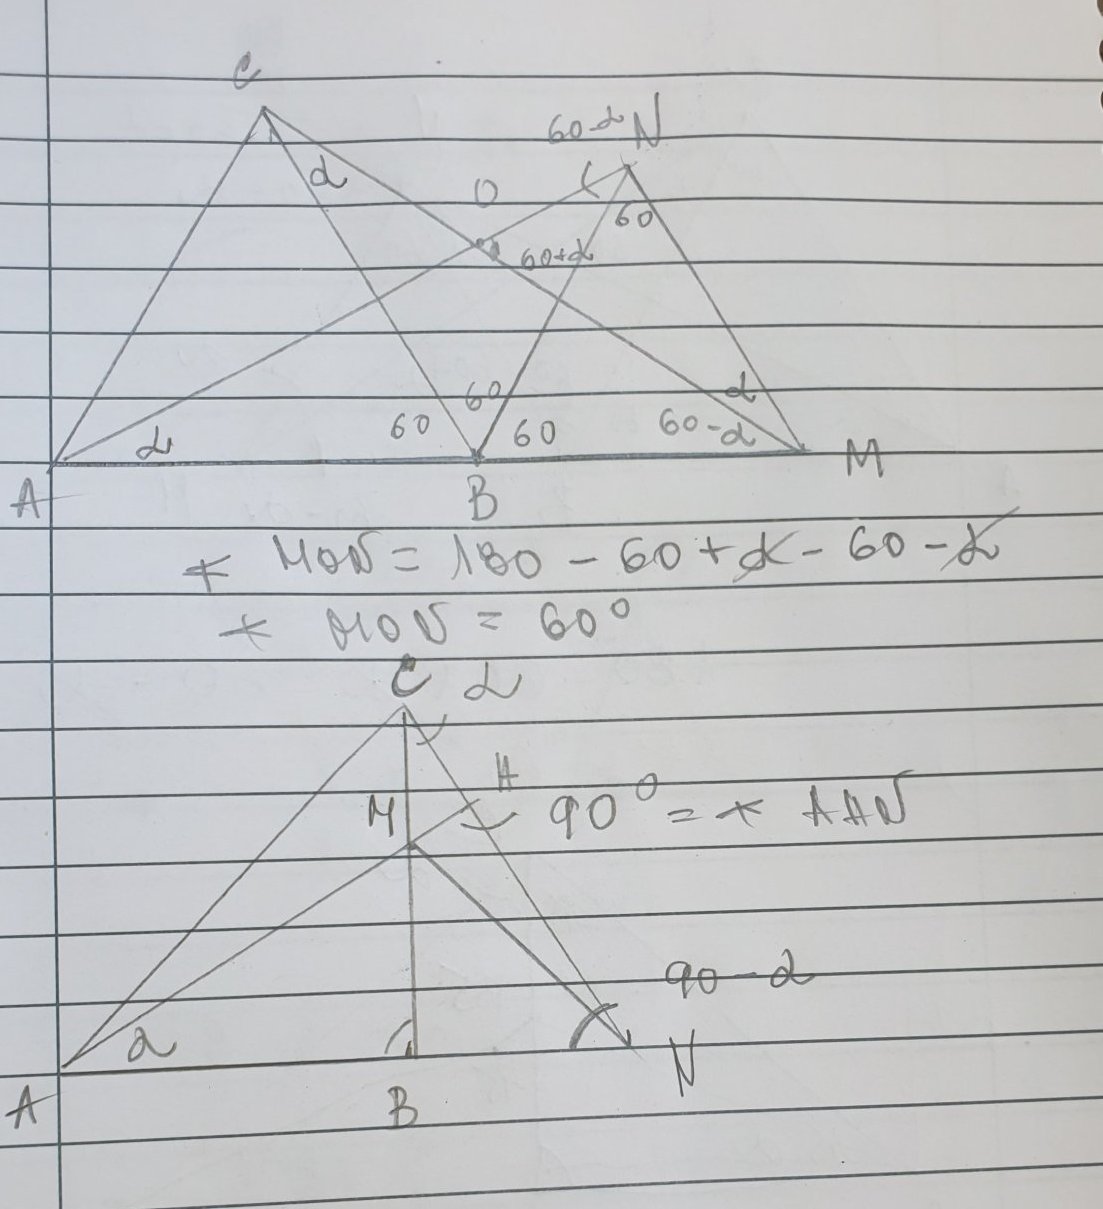 C
60-α N
α
O
60
60+α
60
α
60
60
60-α
α
M
A
B
* MON = 180 - 60 + α - 60 - α
* MON = 60°
C α
H
M
90° = * AHN
90-α
α
N
A
B